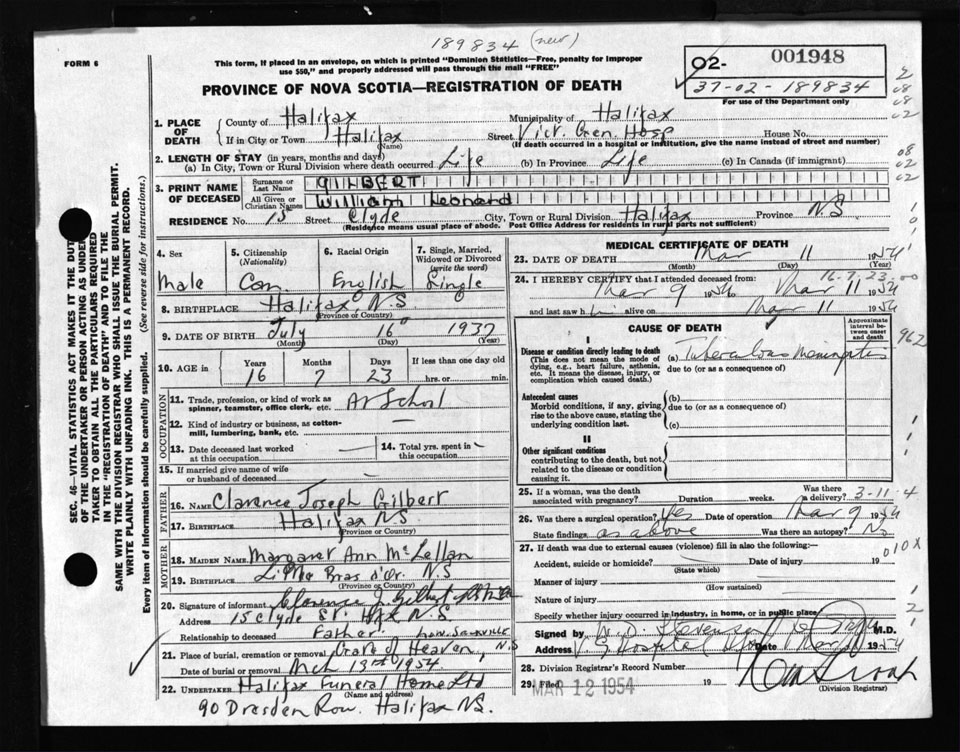 189834 (new)
FORM 6
This form, if placed in an envelope, on which is printed "Dominion Statistics—Free, penalty for improper
use $50," and properly addressed will pass through the mail "FREE"
PROVINCE OF NOVA SCOTIA—REGISTRATION OF DEATH
02- 001948
37-02-189834
For use of the Department only
1. PLACE OF DEATH
County of Halifax Municipality of Halifax
If in City or Town Halifax Street Vict. Gen. Hosp House No.
(Name) (If death occurred in a hospital or institution, give the name instead of street and number)
2. LENGTH OF STAY (in years, months and days)
(a) In City, Town or Rural Division where death occurred Life (b) In Province Life (c) In Canada (if immigrant)
3. PRINT NAME OF DECEASED
Surname or Last Name GILBERT
All Given or Christian Names William Leonard
RESIDENCE No. 15 Street Clyde City, Town or Rural Division Halifax Province N.S.
(Residence means usual place of abode. Post Office Address for residents in rural parts not sufficient)
4. Sex
Male
5. Citizenship
(Nationality)
Can.
6. Racial Origin
English
7. Single, Married, Widowed or Divorced
(write the word)
Single
8. BIRTHPLACE Halifax N.S
(Province or Country)
9. DATE OF BIRTH July 16 1937
(Month) (Day) (Year)
10. AGE in
Years Months Days If less than one day old
16 7 23 hrs. or min.
OCCUPATION
11. Trade, profession, or kind of work as
spinner, teamster, office clerk, etc. At School
12. Kind of industry or business, as cotton-
mill, lumbering, bank, etc. —
13. Date deceased last worked
at this occupation —
14. Total yrs. spent in
this occupation —
15. If married give name of wife
or husband of deceased —
FATHER
16. NAME Clarence Joseph Gilbert
17. BIRTHPLACE Halifax NS
(Province or Country)
MOTHER
18. MAIDEN NAME Margaret Ann McLellan
19. BIRTHPLACE Little Bras d'Or. N.S
(Province or Country)
20. Signature of informant Clarence J. Gilbert
Address 15 Clyde St. Hfx N.S.
Relationship to deceased Father
Low. Sackville
21. Place of burial, cremation or removal Grave of Heaven, N.S
Date of burial or removal Mch 13th 1954
22. UNDERTAKER Halifax Funeral Home Ltd
(Name and address)
90 Dresden Row. Halifax NS.
MEDICAL CERTIFICATE OF DEATH
23. DATE OF DEATH Mar 11 1954
(Month) (Day) (Year)
16-7-23-00
24. I HEREBY CERTIFY that I attended deceased from:
Mar 9 1954 to Mar 11 1954
and last saw him alive on Mar 11 1954
CAUSE OF DEATH
Approximate interval between onset and death
962
I
Disease or condition directly leading to death
(This does not mean the mode of
dying, e.g., heart failure, asthenia,
etc. It means the disease, injury, or
complication which caused death.)
(a) Tuberculous Meningitis
due to (or as a consequence of)
Antecedent causes
Morbid conditions, if any, giving
rise to the above cause, stating the
underlying condition last.
(b)
due to (or as a consequence of)
(c)
II
Other significant conditions
contributing to the death, but not
related to the disease or condition
causing it.
25. If a woman, was the death
associated with pregnancy? Duration weeks. Was there a delivery?
3-11-4
26. Was there a surgical operation? Yes Date of operation Mar 9 1954
State findings as above Was there an autopsy? No
27. If death was due to external causes (violence) fill in also the following:—
Accident, suicide or homicide? Date of injury 19
(State which)
010X
Manner of injury
(How sustained)
Nature of injury
Specify whether injury occurred in industry, in home, or in public place
Signed by M.D.
Address Date Mar 1954
28. Division Registrar's Record Number
29. Filed MAR 12 1954 19
(Division Registrar)
SEC. 46—VITAL STATISTICS ACT MAKES IT THE DUTY
OF THE UNDERTAKER OR PERSON ACTING AS UNDER-
TAKER TO OBTAIN ALL THE PARTICULARS REQUIRED
IN THE "REGISTRATION OF DEATH" AND TO FILE THE
SAME WITH THE DIVISION REGISTRAR WHO SHALL ISSUE THE BURIAL PERMIT.
WRITE PLAINLY WITH UNFADING INK. THIS IS A PERMANENT RECORD.
Every item of information should be carefully supplied. (See reverse side for instructions.)